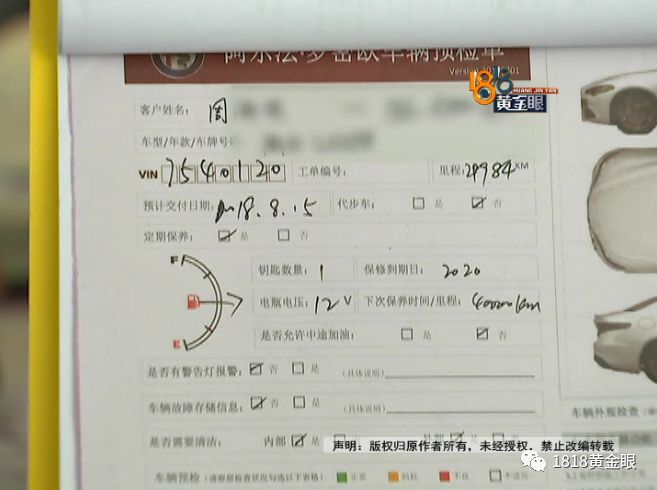 阿尔法·罗密欧车辆预检单
1818
HUANG JIN YAN
黄金眼
客户姓名： 周
车型/年款/车牌号：
VIN 7540120 工单编号： 里程： 29984 KM
预计交付日期： 2018.8.15 代步车： 是 否
定期保养： 是 否
F 钥匙数量： 1 保修到期日： 2020
电瓶电压： 12 V 下次保养时间/里程： 40000km
E 是否允许中途加油： 是 否
是否有警告灯报警： 否 是 (具体说明)
车辆故障存储信息： 否 是 (具体说明)
车辆外观检查
是否需要清洁： 内部 是
声明：版权归原作者所有，未经授权，禁止改编转载
1818黄金眼
车辆预检 (请根据检查状况勾选以下表格) 正常